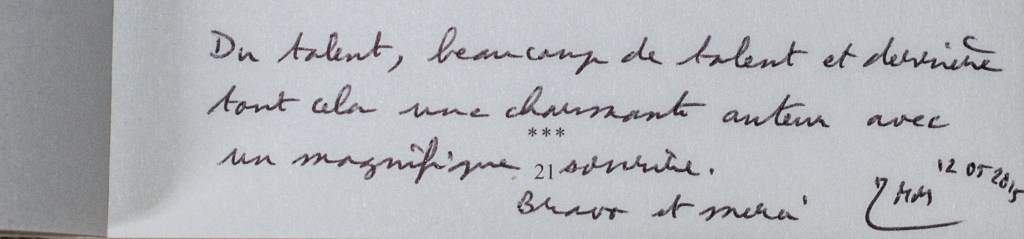 Du talent, beaucoup de talent et derrière
tout cela une charmante auteur avec
***
un magnifique sourire.
21
Bravo et merci
12 05 2015